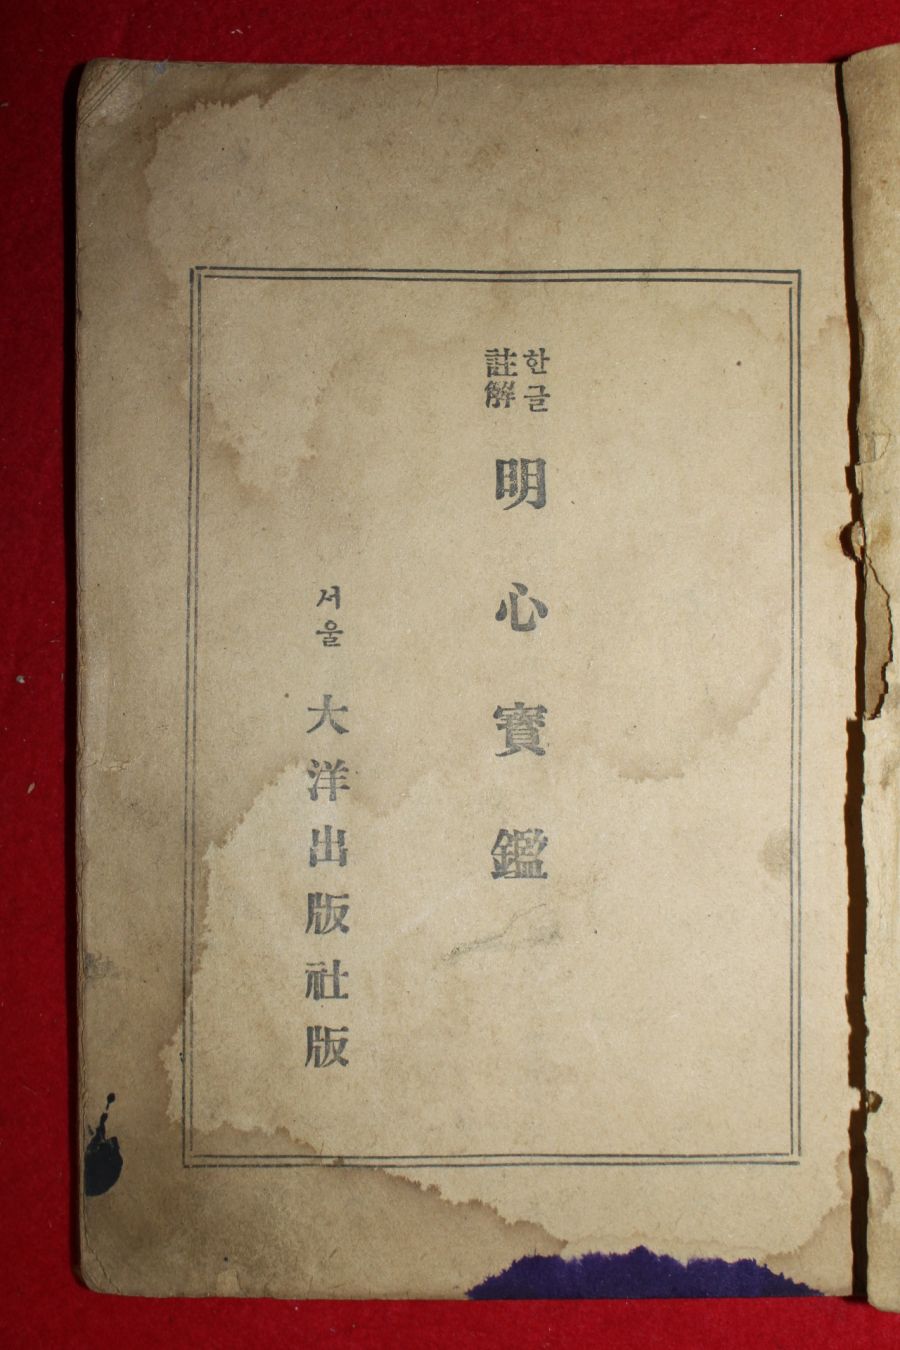 한글
註解
明心寶鑑
서울
大洋出版社版